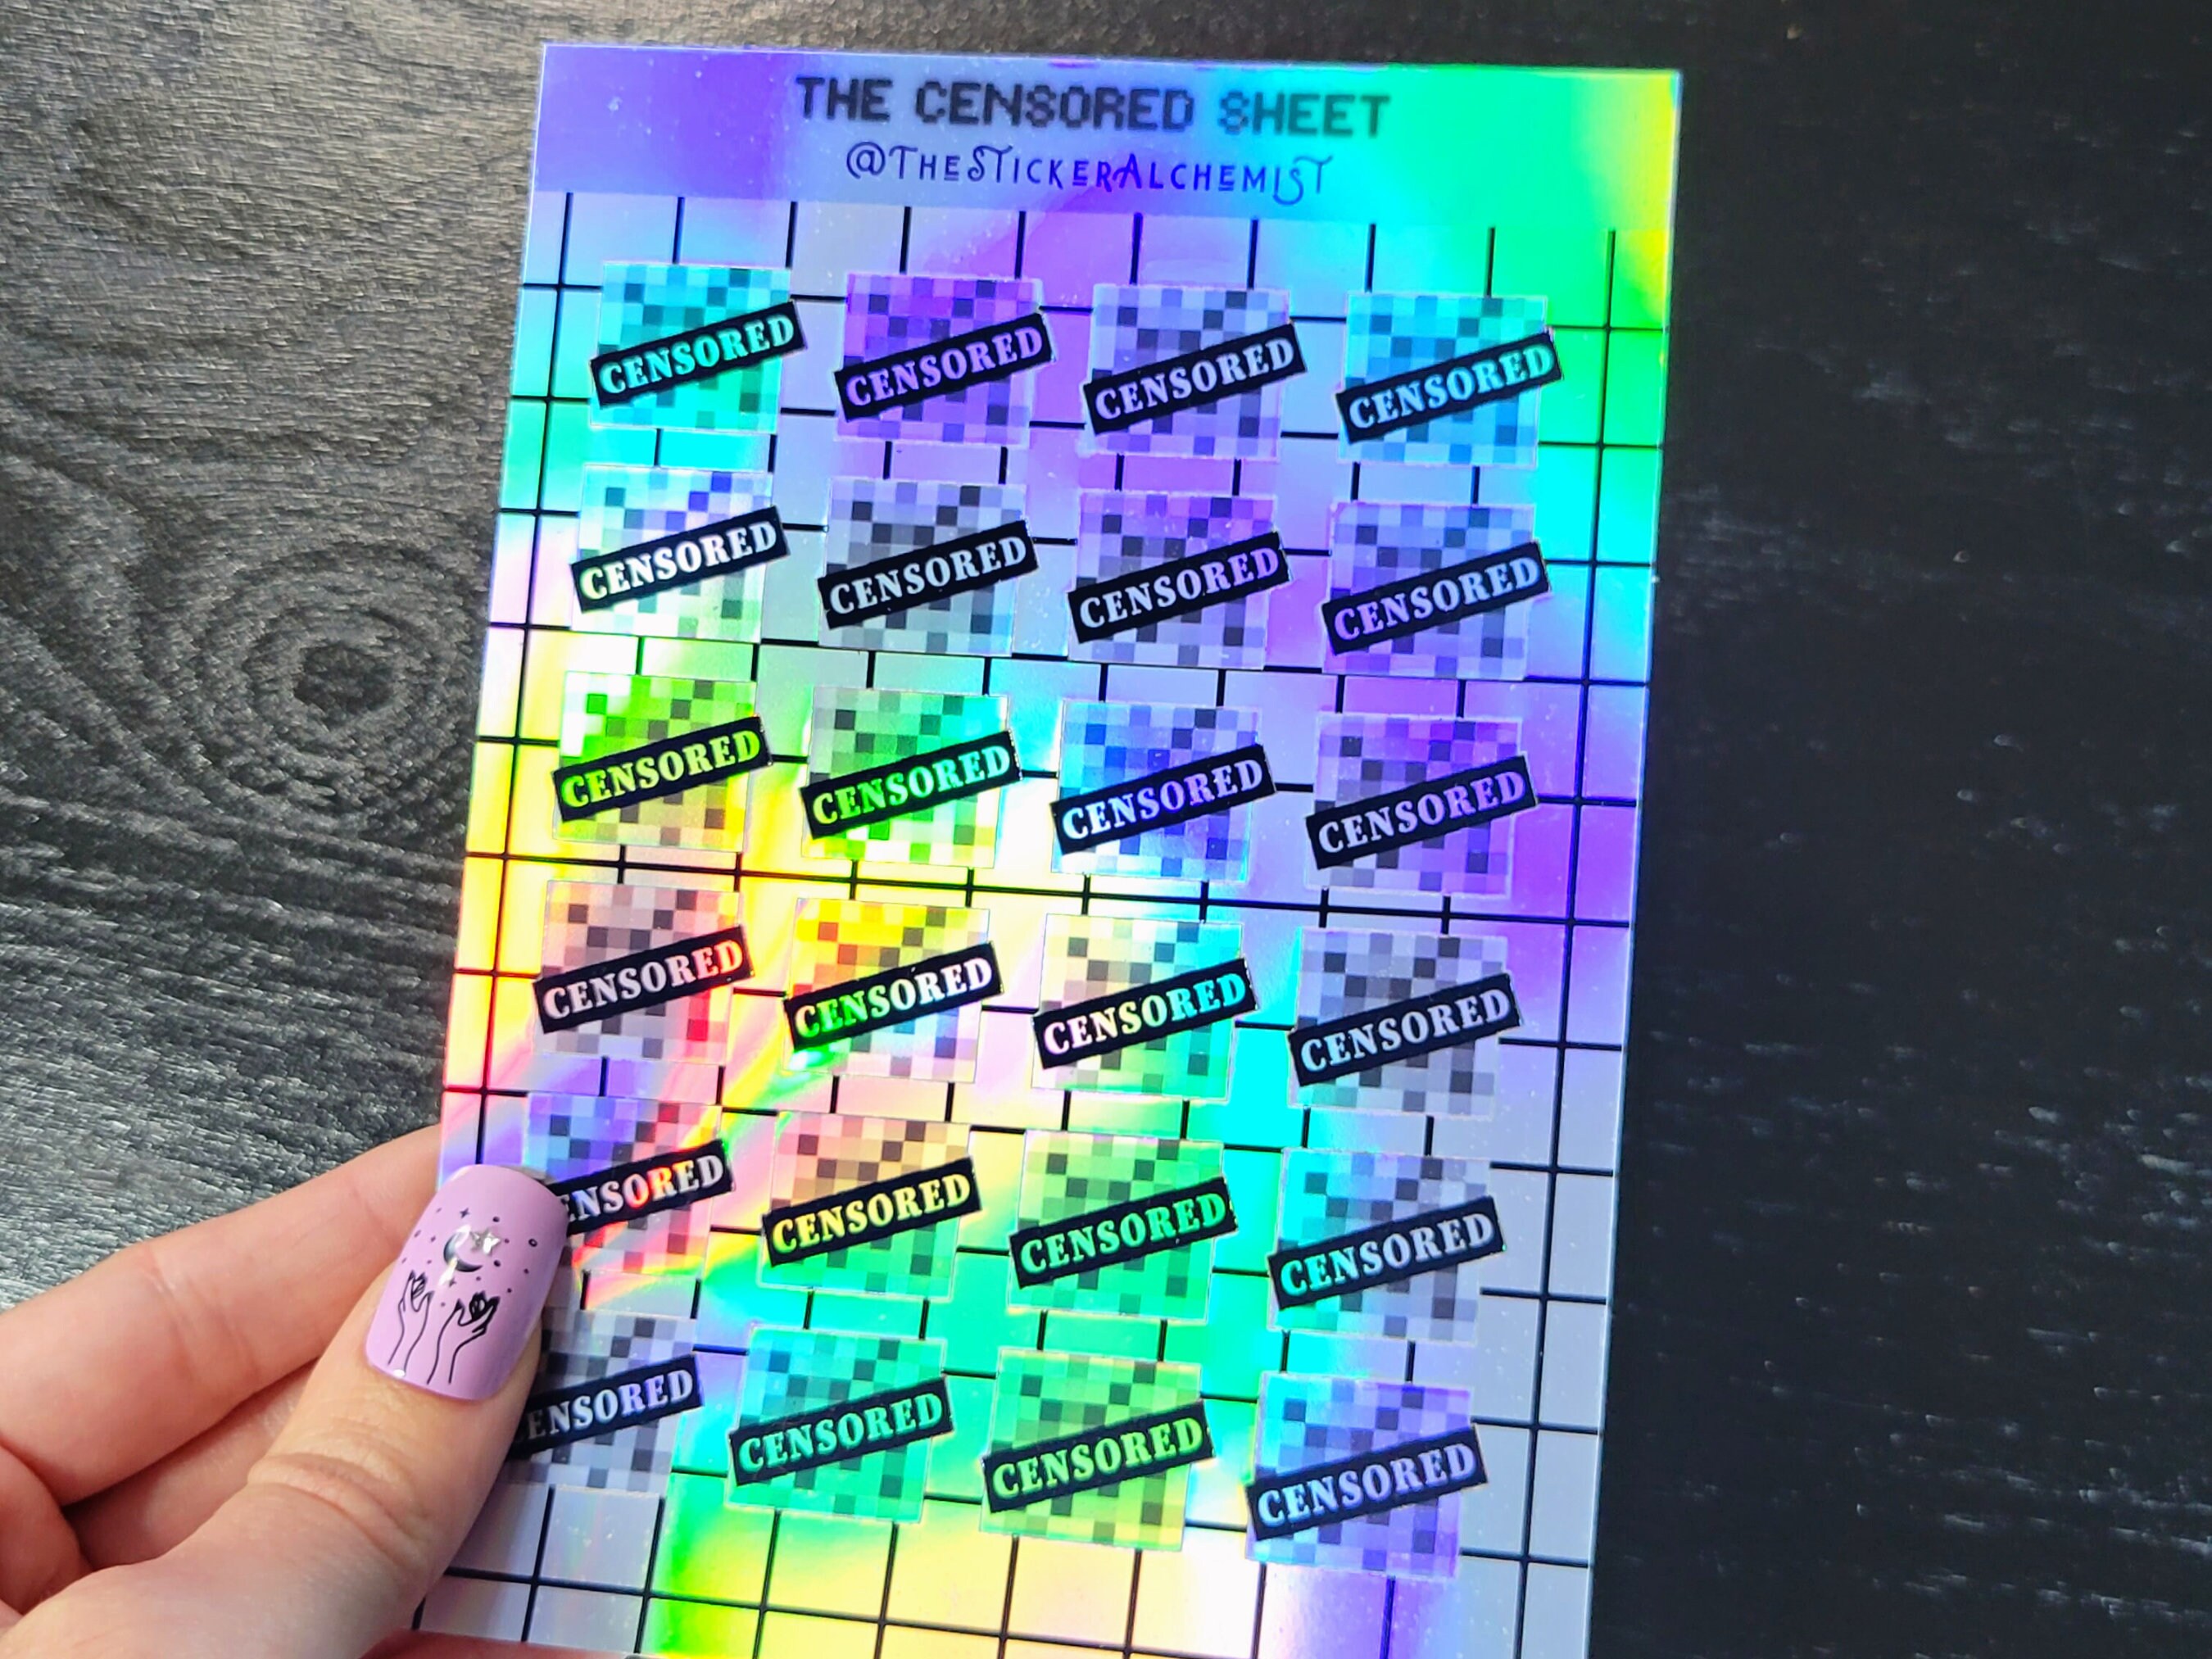 THE CENSORED SHEET
@THESTICKERALCHEMIST
CENSORED CENSORED CENSORED CENSORED
CENSORED CENSORED CENSORED CENSORED
CENSORED CENSORED CENSORED CENSORED
CENSORED CENSORED CENSORED CENSORED
ENSORED CENSORED CENSORED CENSORED
ENSORED CENSORED CENSORED CENSORED